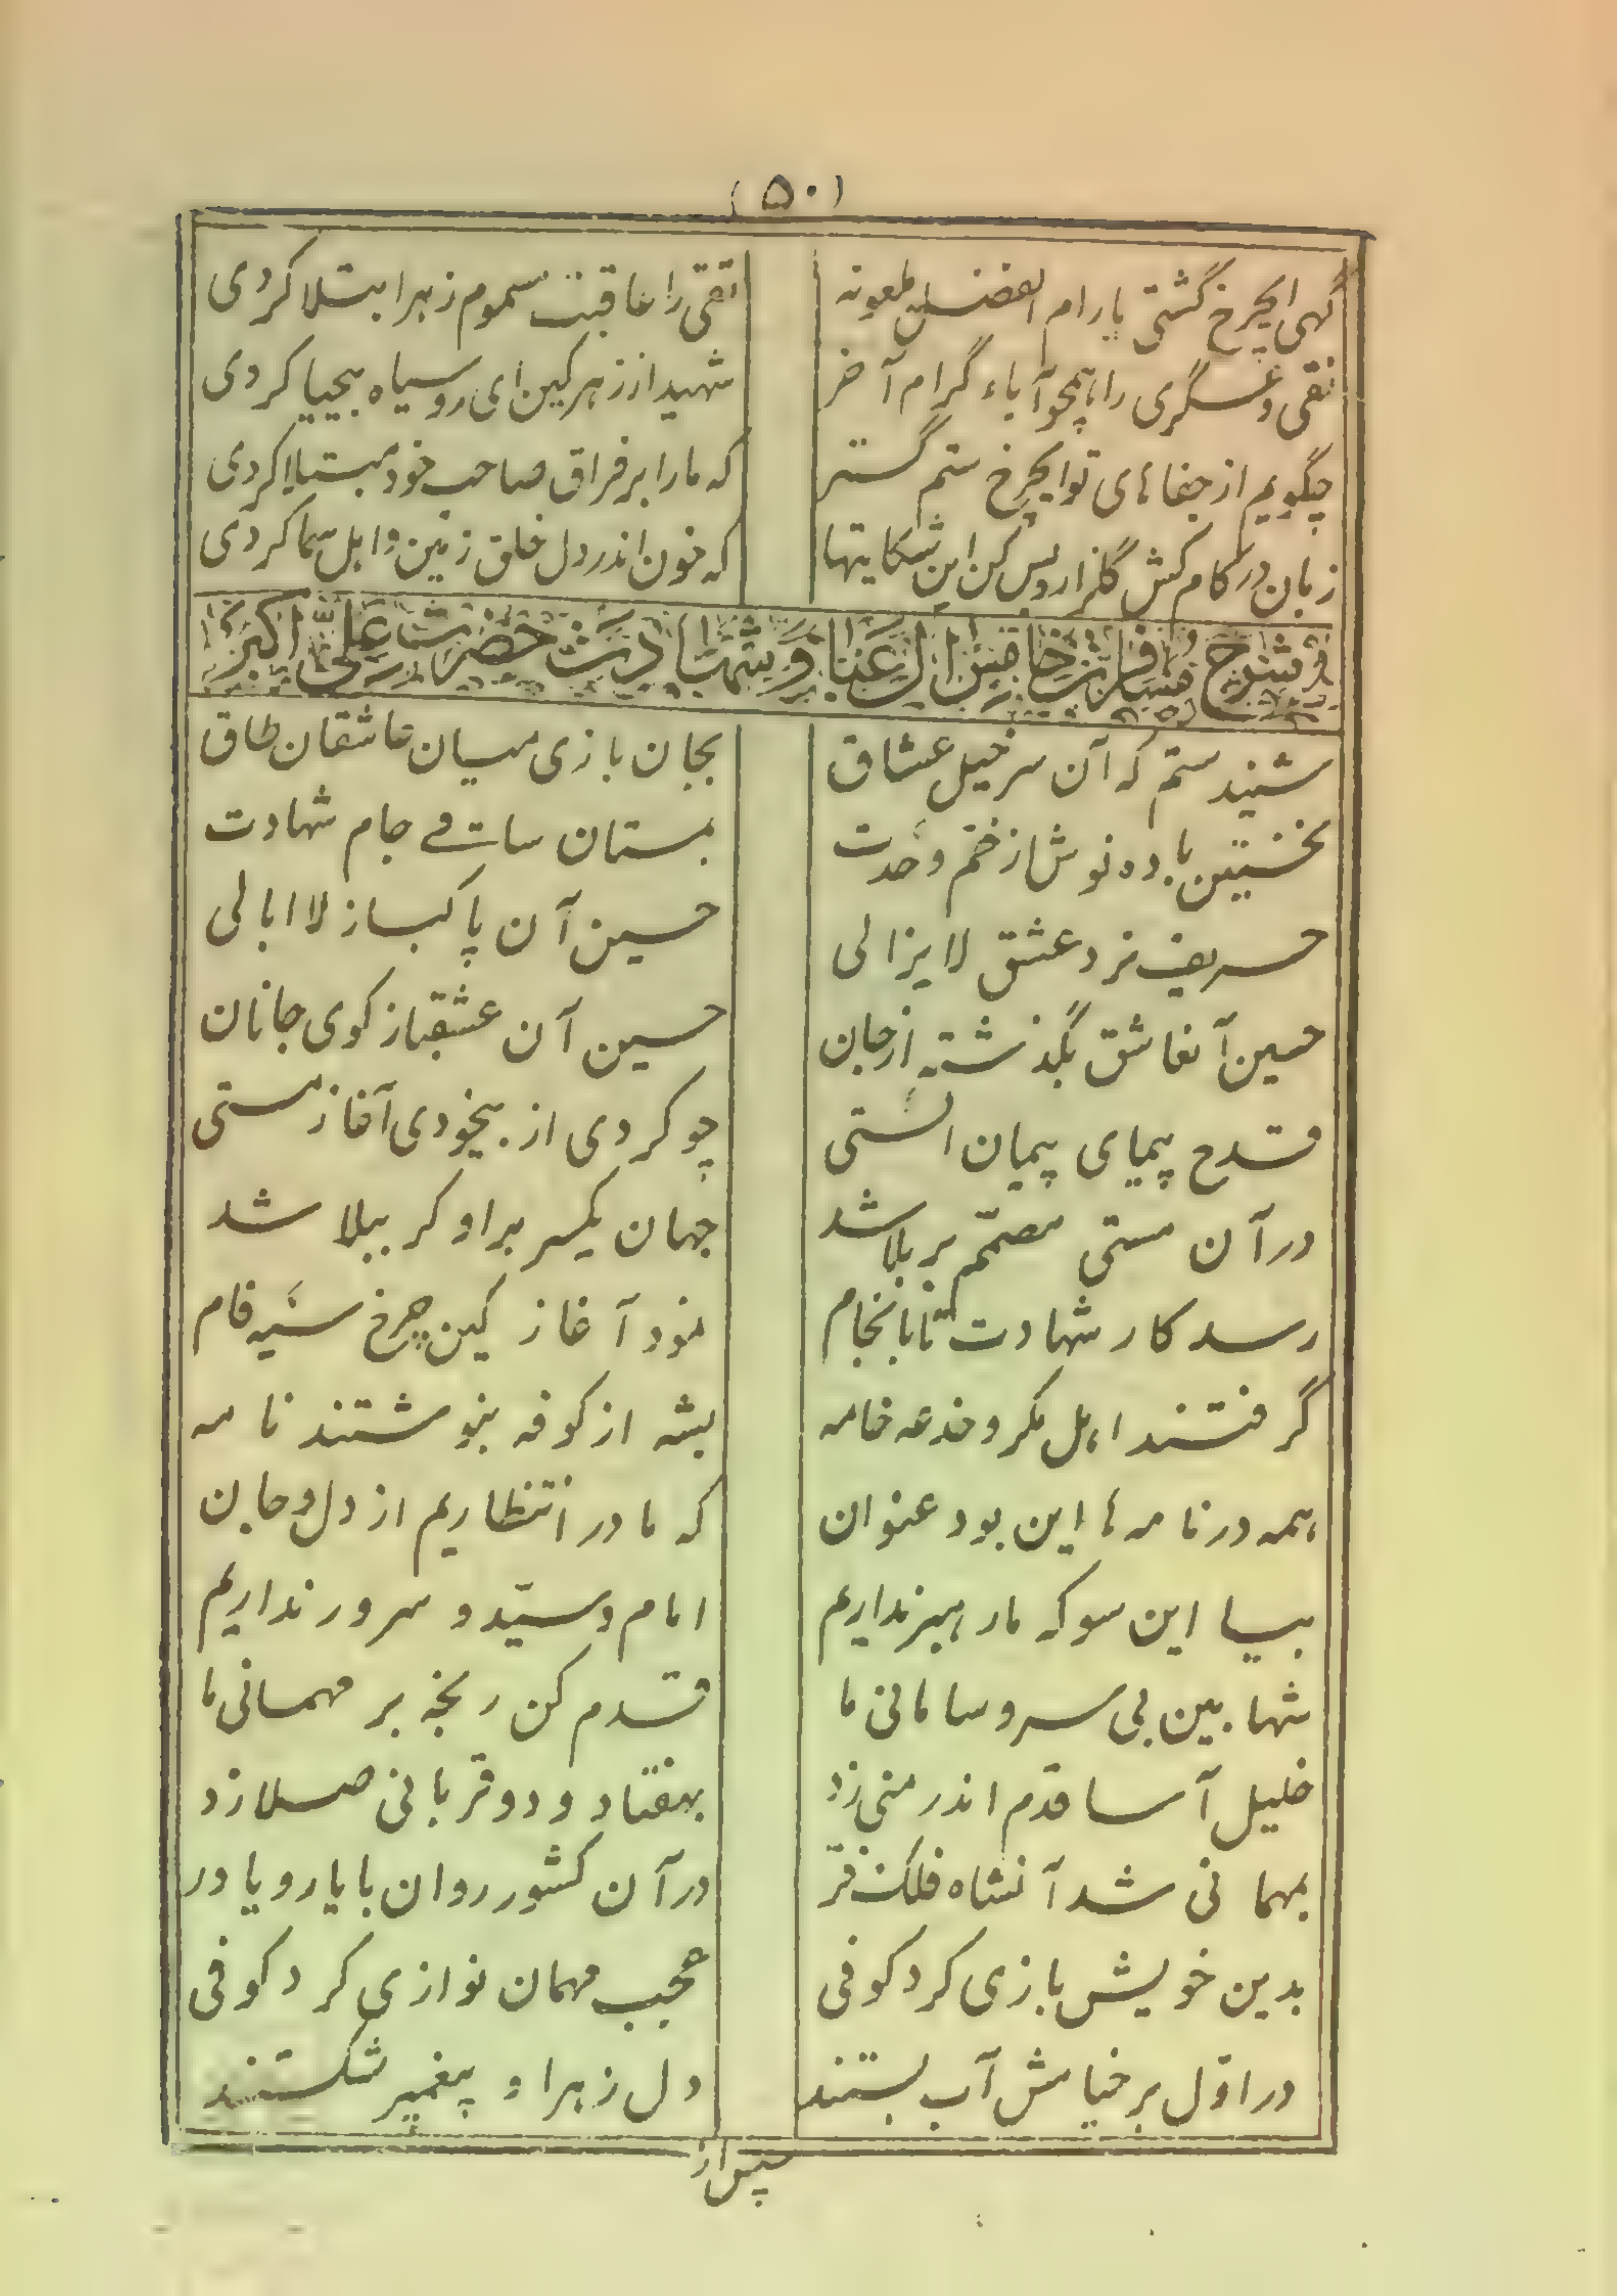 (۵۰)
گهی ایچرخ گشتی یار ام الفضل ملعونه
تقی را عاقبت مسموم زهر ابتلا کردی
نقی و عسگری را همچو آباء گرام آخر
شهید از زهر کین ای روسیاه بیحیا کردی
چگویم از جفاهای تو ایچرخ ستم گستر
که ما را بر فراق صاحب خود مبتلا کردی
زبان در کام کش گلزار و بس کن این شکایتها
که خون اندر دل خلق زمین و اهل سما کردی
در شرح مسافرت خامس آل عبا و شهادت حضرت علی اکبر
شنیدستم که آن سرخیل عشاق
بجان بازی میان عاشقان طاق
نخستین باده نوش از خم وحدت
بمستان ساقی جام شهادت
حریف نرد عشق لایزالی
حسین آن پاکباز لا ابالی
حسین آنعاشق بگذشته از جان
حسین آن عشقباز کوی جانان
قدح پیمای پیمان الستی
چو کردی از بیخودی آغاز مستی
در آن مستی مصمّم بر بلا شد
جهان یکسر بر او کرببلا شد
رسد کار شهادت تا بانجام
نمود آغاز کین چرخ سیه فام
گرفتند اهل مکر و خدعه خامه
بشه از کوفه بنوشتند نامه
همه در نامه ها این بود عنوان
که ما در انتظاریم از دل و جان
بیا این سو که ما رهبر نداریم
امام و سیّد و سرور نداریم
شها بین بی سر و سامانی ما
قدم کن رنجه بر مهمانی ما
خلیل آسا قدم اندر منی زد
بهفتاد و دو قربانی صلا زد
بمهمانی شد آنشاه فلک فرّ
در آن کشور روان با یار و یاور
بدین خویش بازی کرد کوفی
عجب مهمان نوازی کرد کوفی
در اوّل بر خیامش آب بستند
دل زهرا و پیغمبر شکستند
سپس از